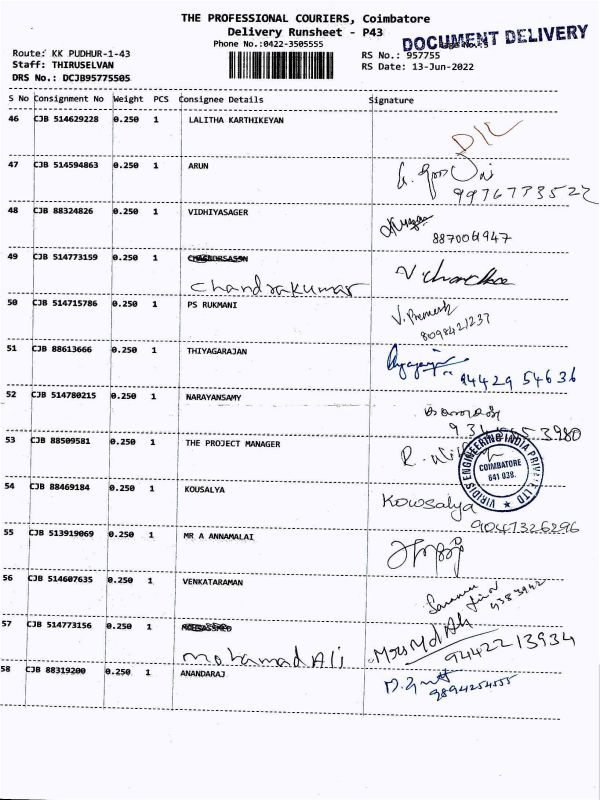 THE PROFESSIONAL COURIERS, Coimbatore
Delivery Runsheet - P43
Phone No.:0422-3505555
DOCUMENT DELIVERY
Route: KK PUDHUR-1-43
Staff: THIRUSELVAN
DRS No.: DCJB95775505
RS No.: 957755
RS Date: 13-Jun-2022
S No Consignment No Weight PCS Consignee Details Signature
46 CJB 514629228 0.250 1 LALITHA KARTHIKEYAN
D/L
47 CJB 514594863 0.250 1 ARUN
9976733522
48 CJB 88324826 0.250 1 VIDHIYASAGER
49 CJB 514773159 0.250 1
Chandrakumar
50 CJB 514715786 0.250 1 PS RUKMANI
V. Premesh
8098421237
51 CJB 88613666 0.250 1 THIYAGARAJAN
94429 54636
52 CJB 514780215 0.250 1 NARAYANSAMY
53 CJB 88509581 0.250 1 THE PROJECT MANAGER
VIRIDIS ENGINEERING INDIA PRIVATE LTD
COIMBATORE
641 038.
54 CJB 88469184 0.250 1 KOUSALYA
Kowsalya
9047326296
55 CJB 513919069 0.250 1 MR A ANNAMALAI
56 CJB 514607635 0.250 1 VENKATARAMAN
57 CJB 514773156 0.250 1
Mohamad Ali
9442213934
58 CJB 88319200 0.250 1 ANANDARAJ
9894254555